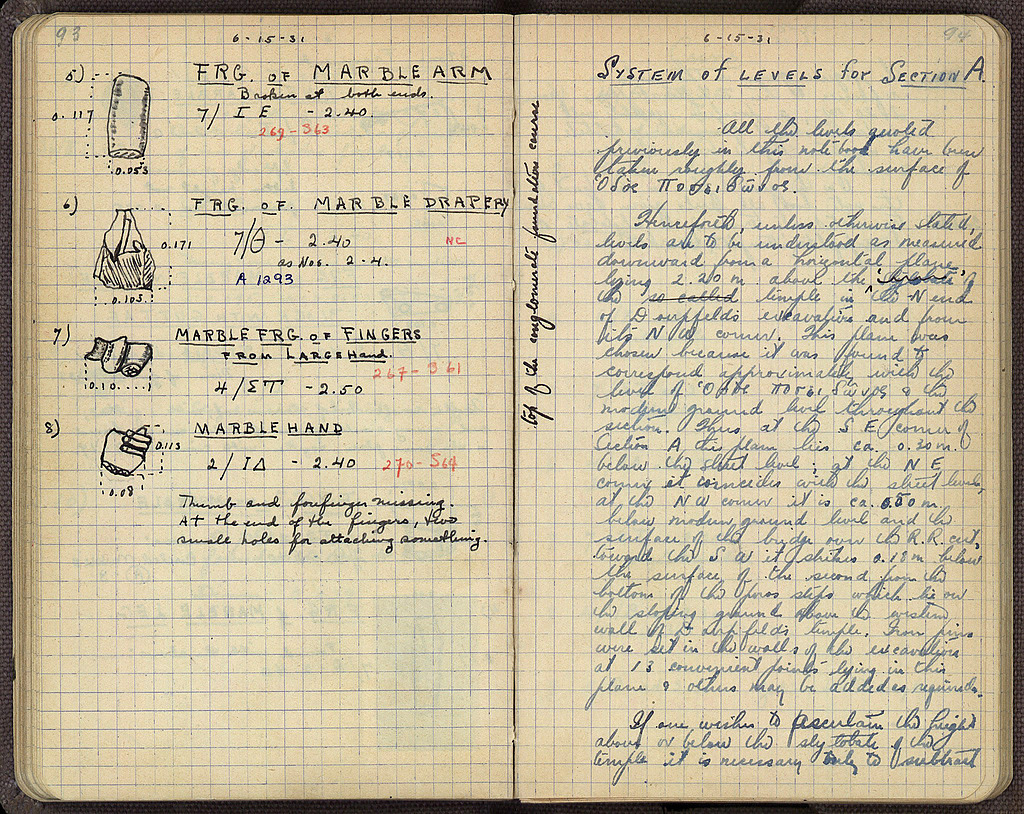 93
6-15-31
5)
FRG. OF MARBLE ARM
Broken at both ends.
0.117
7/ I E - 2.40.
269-S63
0.053
6)
FRG. OF MARBLE DRAPERY
0.171
7/Θ - 2.40
NC
as Nos. 2-4.
A 1293
0.105
7)
MARBLE FRG. OF FINGERS
FROM LARGE HAND.
267-S61
0.10
4/ΣΤ - 2.50
8)
MARBLE HAND
0.113
2/ΙΔ - 2.40
270-S64
0.08
Thumb and forefinger missing.
At the end of the fingers, two
small holes for attaching something.
top of the conglomerate foundation course
94
6-15-31
SYSTEM OF LEVELS for SECTION A.
All the levels quoted
previously in this note book have been
taken roughly from the surface of
Ὁδος Ποσειδῶνος.
Henceforth, unless otherwise stated,
levels are to be understood as measured
downward from a horizontal plane
lying 2.20 m. above the stylobate of
the so called temple in the N end
of Dörpfeld's excavation and from
its N W corner. This plane was
chosen because it was found to
correspond approximately with the
level of Ὁδος Ποσειδῶνος & the
modern ground level throughout the
section. Thus at the S E corner of
Section A this plane lies ca. 0.30 m.
below the street level; at the N E
corner it coincides with the street level;
at the N W corner it is ca. 0.50 m.
below modern ground level and the
surface of the bridge over the R.R. cut;
toward the S W it strikes 0.18 m. below
the surface of the second from the
bottom of the poros steps which lie on
the sloping ground above the western
wall of Dörpfeld's temple. Iron pins
were set in the walls of the excavation
at 13 convenient points lying in this
plane & others may be added as required.
If one wishes to ascertain the height
above or below the stylobate of the
temple it is necessary only to subtract